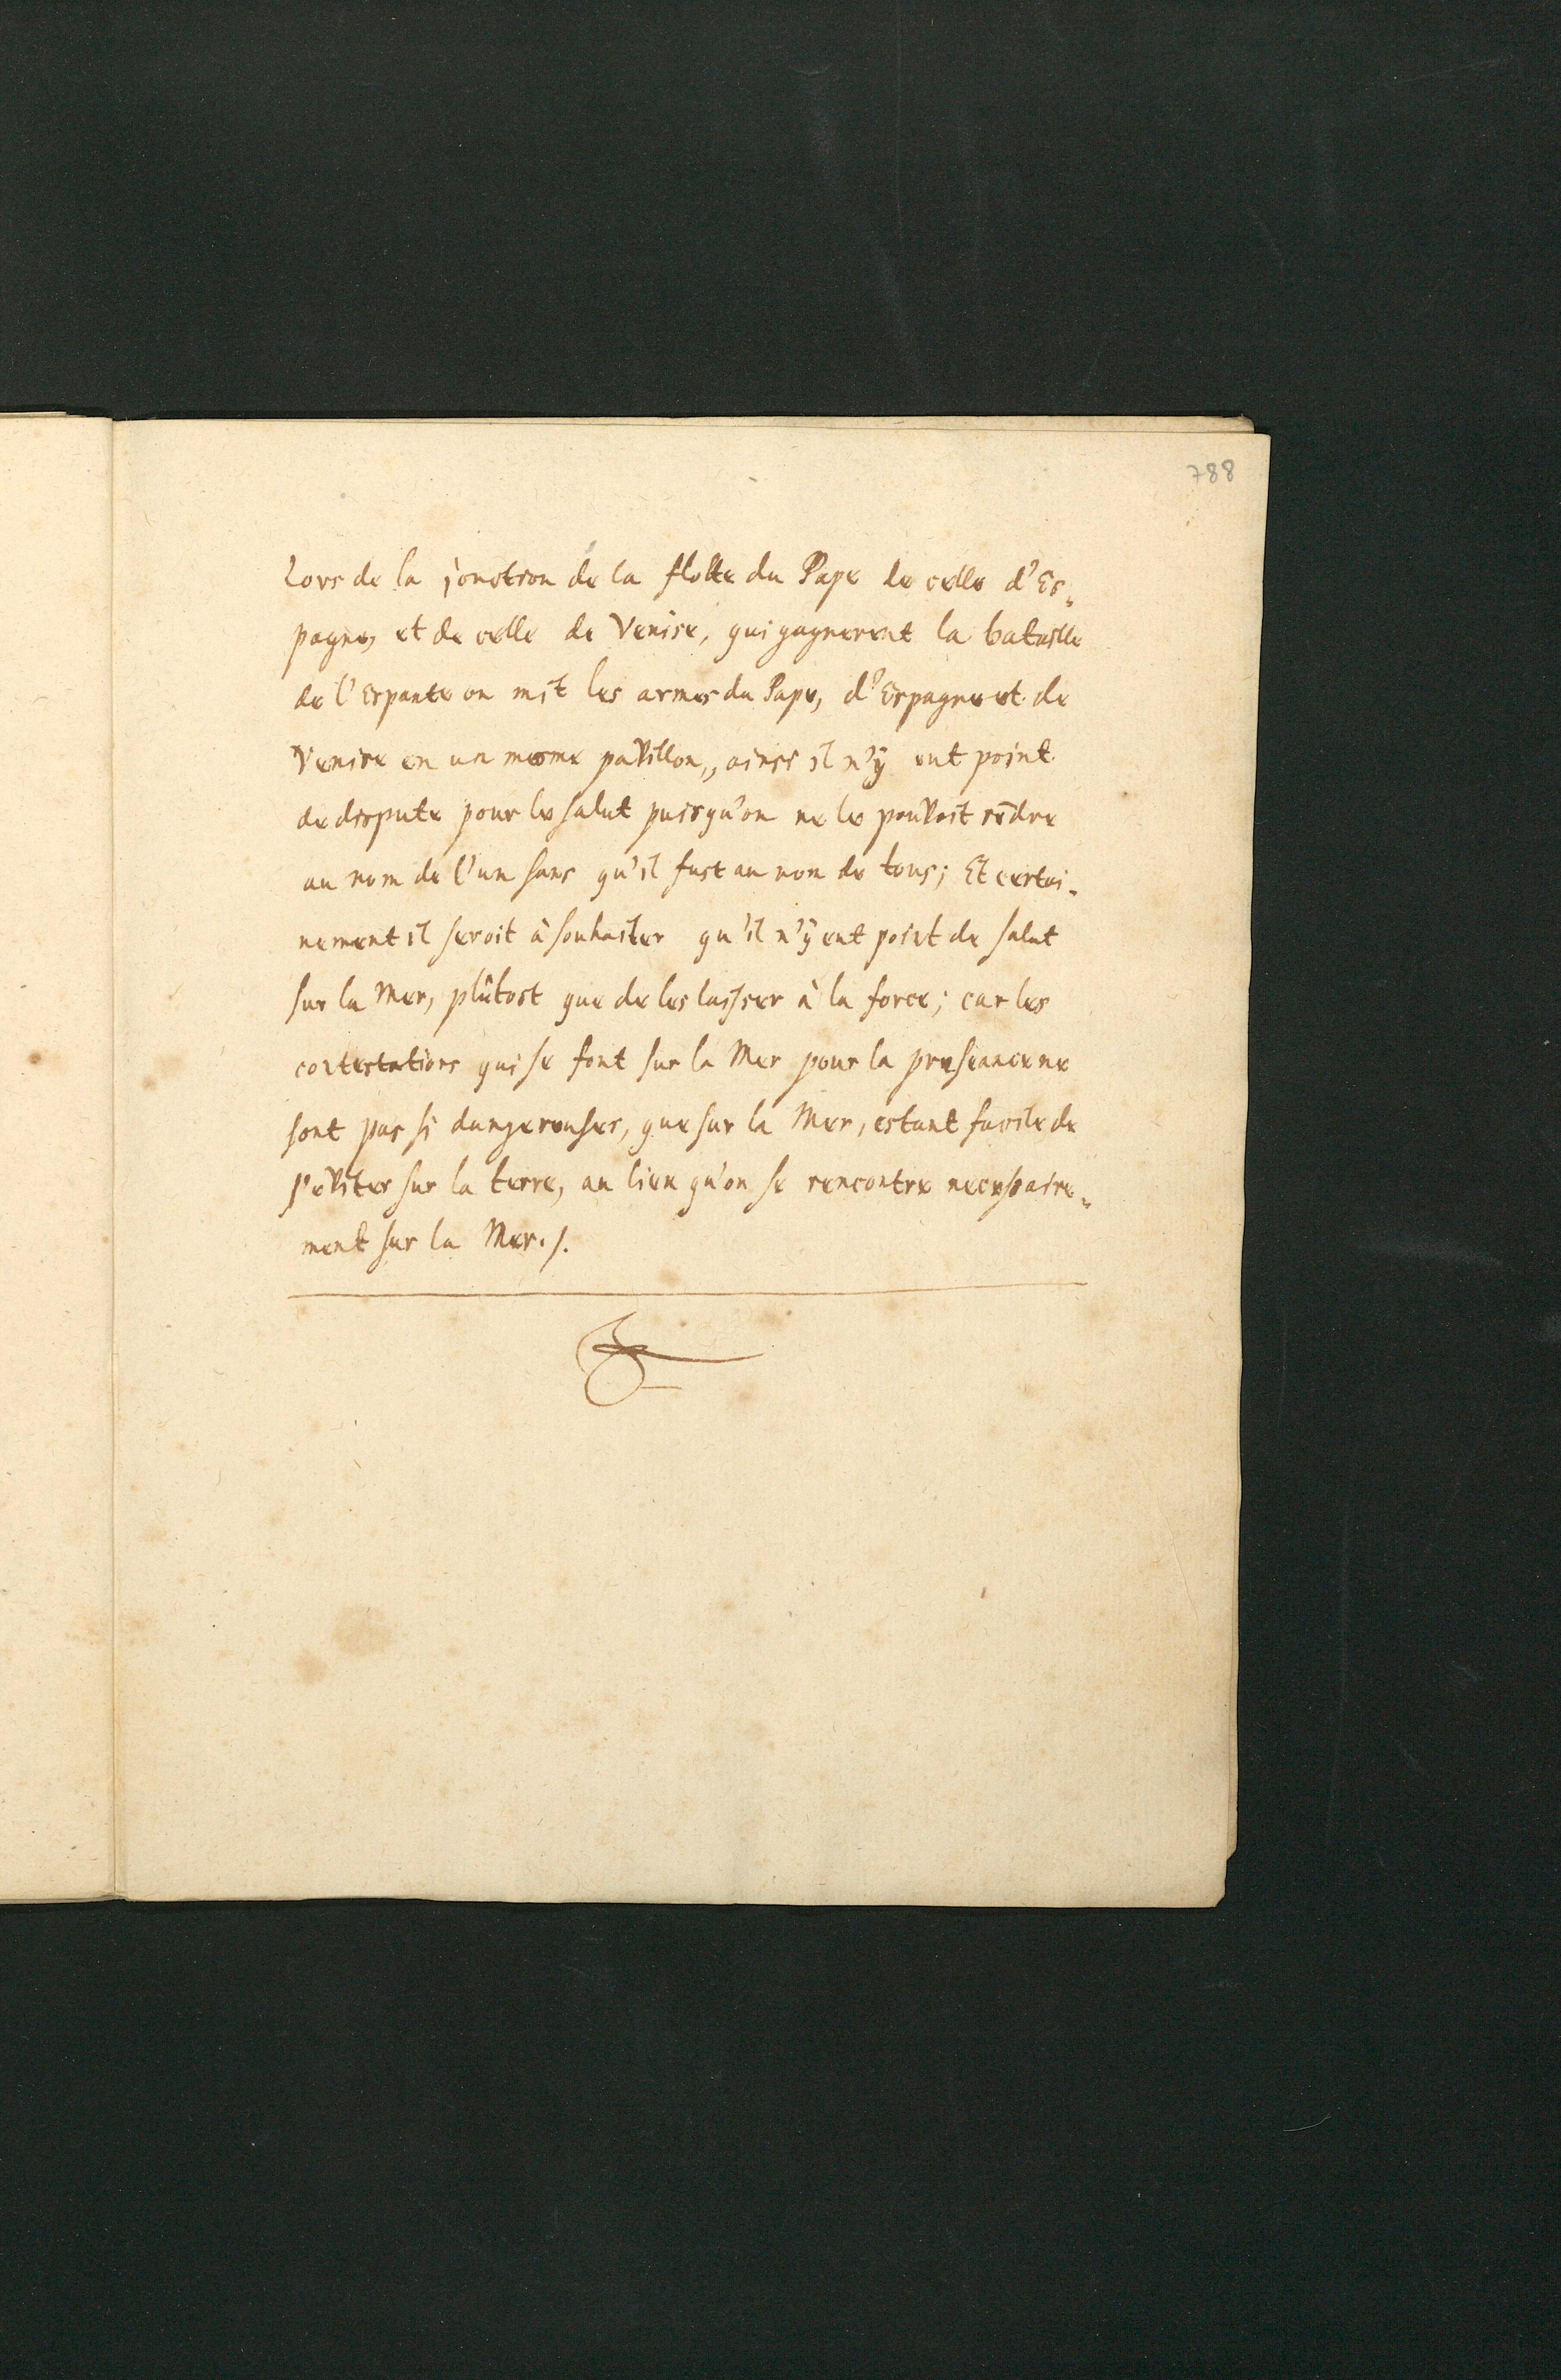 788
Lors de la jonction de la flotte du Pape de celle d'Es-
pagne, et de celle de Venise, qui gagnerent la bataille
de l'Espante on mit les armes du Pape, d'Espagne et de
Venise en un mesme pavillon,, ainsi il n'ÿ eut point
de dispute pour le salut puisqu'on ne le pouvoit rēdre
au nom de l'un sans qu'il fust au nom de tous; Et certai-
nement il seroit à souhaiter qu'il n'ÿ eut point de salut
sur la Mer, plûtost que de les laisser à la force; car les
contestations qui se font sur la Mer pour la preseance ne
sont pas si dangereuses, que sur la Mer, estant facile de
l'eviter sur la terre, au lieu qu'on se rencontre necessaire-
ment sur la Mer./.